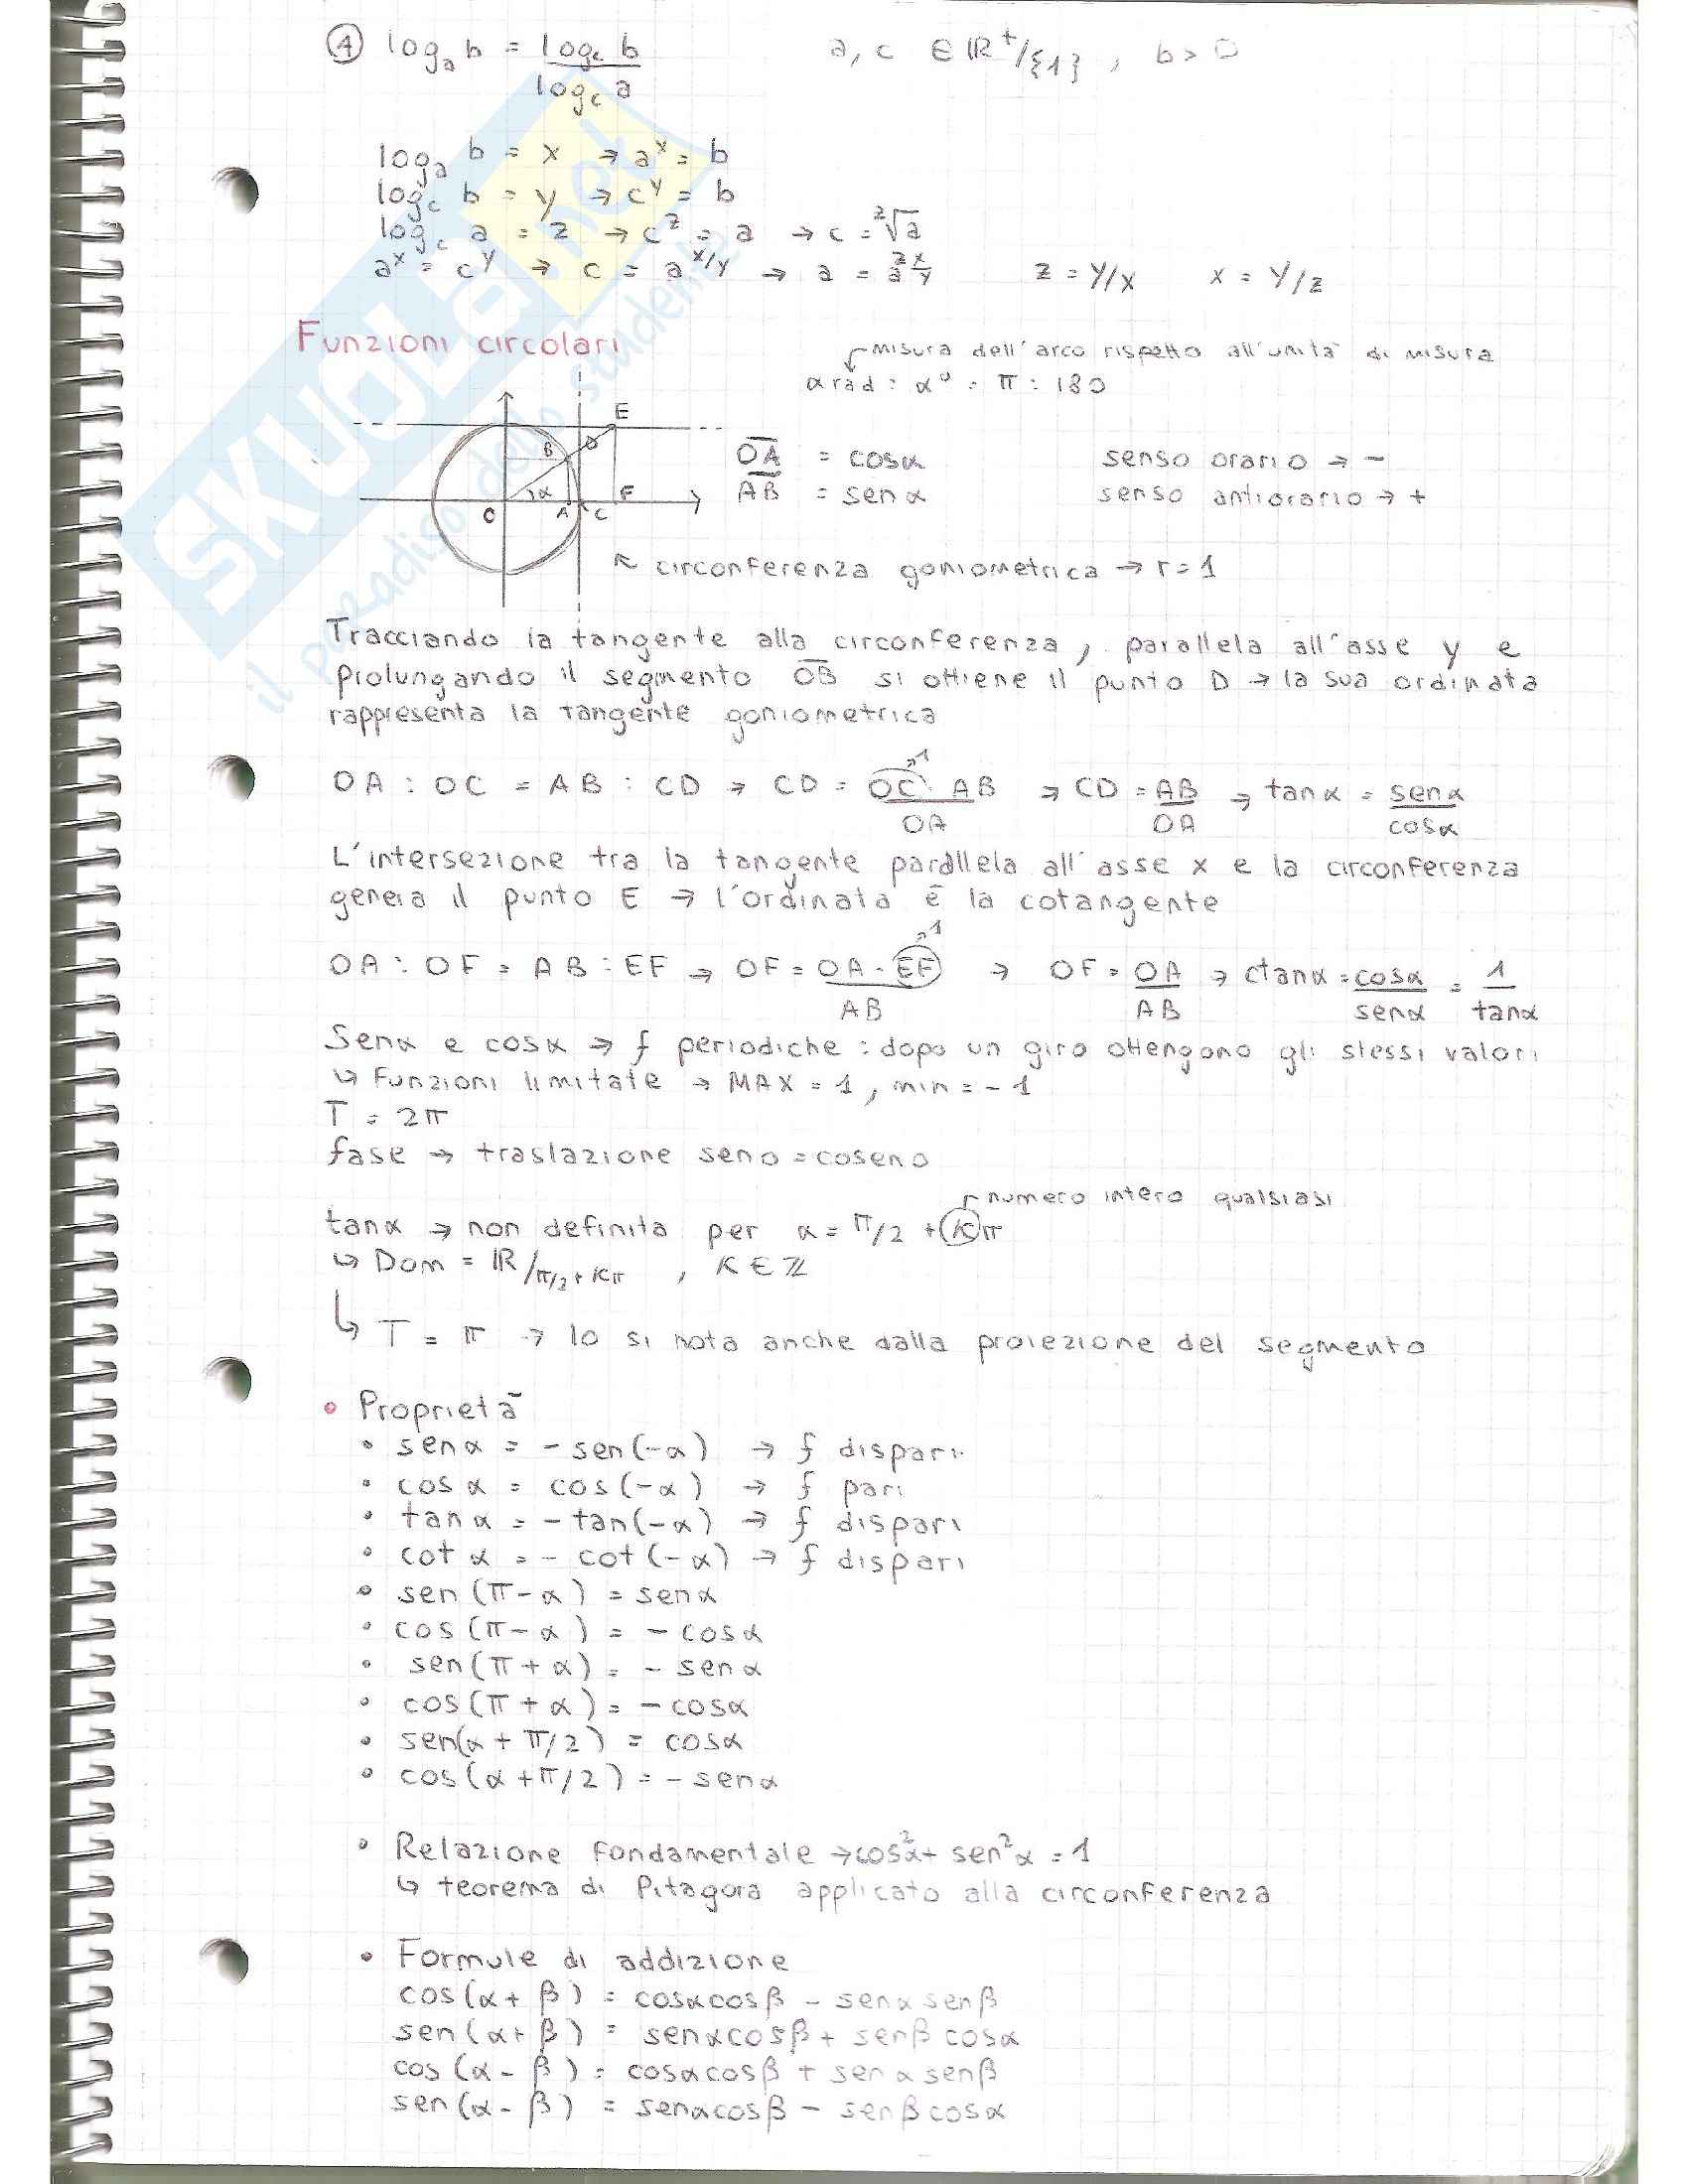 ④ log_a b = log_c b / log_c a     a, c ∈ ℝ⁺/{1} , b > 0
log_a b = x → aˣ = b
log_c b = y → cʸ = b
log_c a = z → cᶻ = a → c = ᶻ√a
aˣ = cʸ → c = a^(x/y) → a = a^(zx/y)     z = y/x     x = y/z
Funzioni circolari
misura dell'arco rispetto all'unità di misura
α rad : α° = π : 180
E
B D
OA = cosα     senso orario → -
α F
AB = senα     senso antiorario → +
O A C
circonferenza goniometrica → r = 1
Tracciando la tangente alla circonferenza, parallela all'asse y e
prolungando il segmento OB si ottiene il punto D → la sua ordinata
rappresenta la tangente goniometrica
OA : OC = AB : CD → CD = OC · AB / OA → CD = AB / OA → tanα = senα / cosα
1
L'intersezione tra la tangente parallela all'asse x e la circonferenza
genera il punto E → l'ordinata è la cotangente
OA : OF = AB : EF → OF = OA · EF / AB → OF = OA / AB → ctanα = cosα / senα = 1 / tanα
1
Senα e cosα → f periodiche : dopo un giro ottengono gli stessi valori
↳ Funzioni limitate → MAX = 1, min = -1
T = 2π
fase → traslazione seno = coseno
numero intero qualsiasi
tanα → non definita per α = π/2 + kπ
↳ Dom = ℝ/π/2 + kπ , k ∈ ℤ
↳ T = π → lo si nota anche dalla proiezione del segmento
• Proprietà
• senα = - sen(-α) → f dispari
• cosα = cos(-α) → f pari
• tanα = - tan(-α) → f dispari
• cotα = - cot(-α) → f dispari
• sen(π-α) = senα
• cos(π-α) = - cosα
• sen(π+α) = - senα
• cos(π+α) = - cosα
• sen(α+π/2) = cosα
• cos(α+π/2) = - senα
• Relazione Fondamentale → cos²α + sen²α = 1
↳ teorema di Pitagora applicato alla circonferenza
• Formule di addizione
cos(α+β) = cosαcosβ - senαsenβ
sen(α+β) = senαcosβ + senβcosα
cos(α-β) = cosαcosβ + senαsenβ
sen(α-β) = senαcosβ - senβcosα
SKUOLA.net
il paradiso dello studente